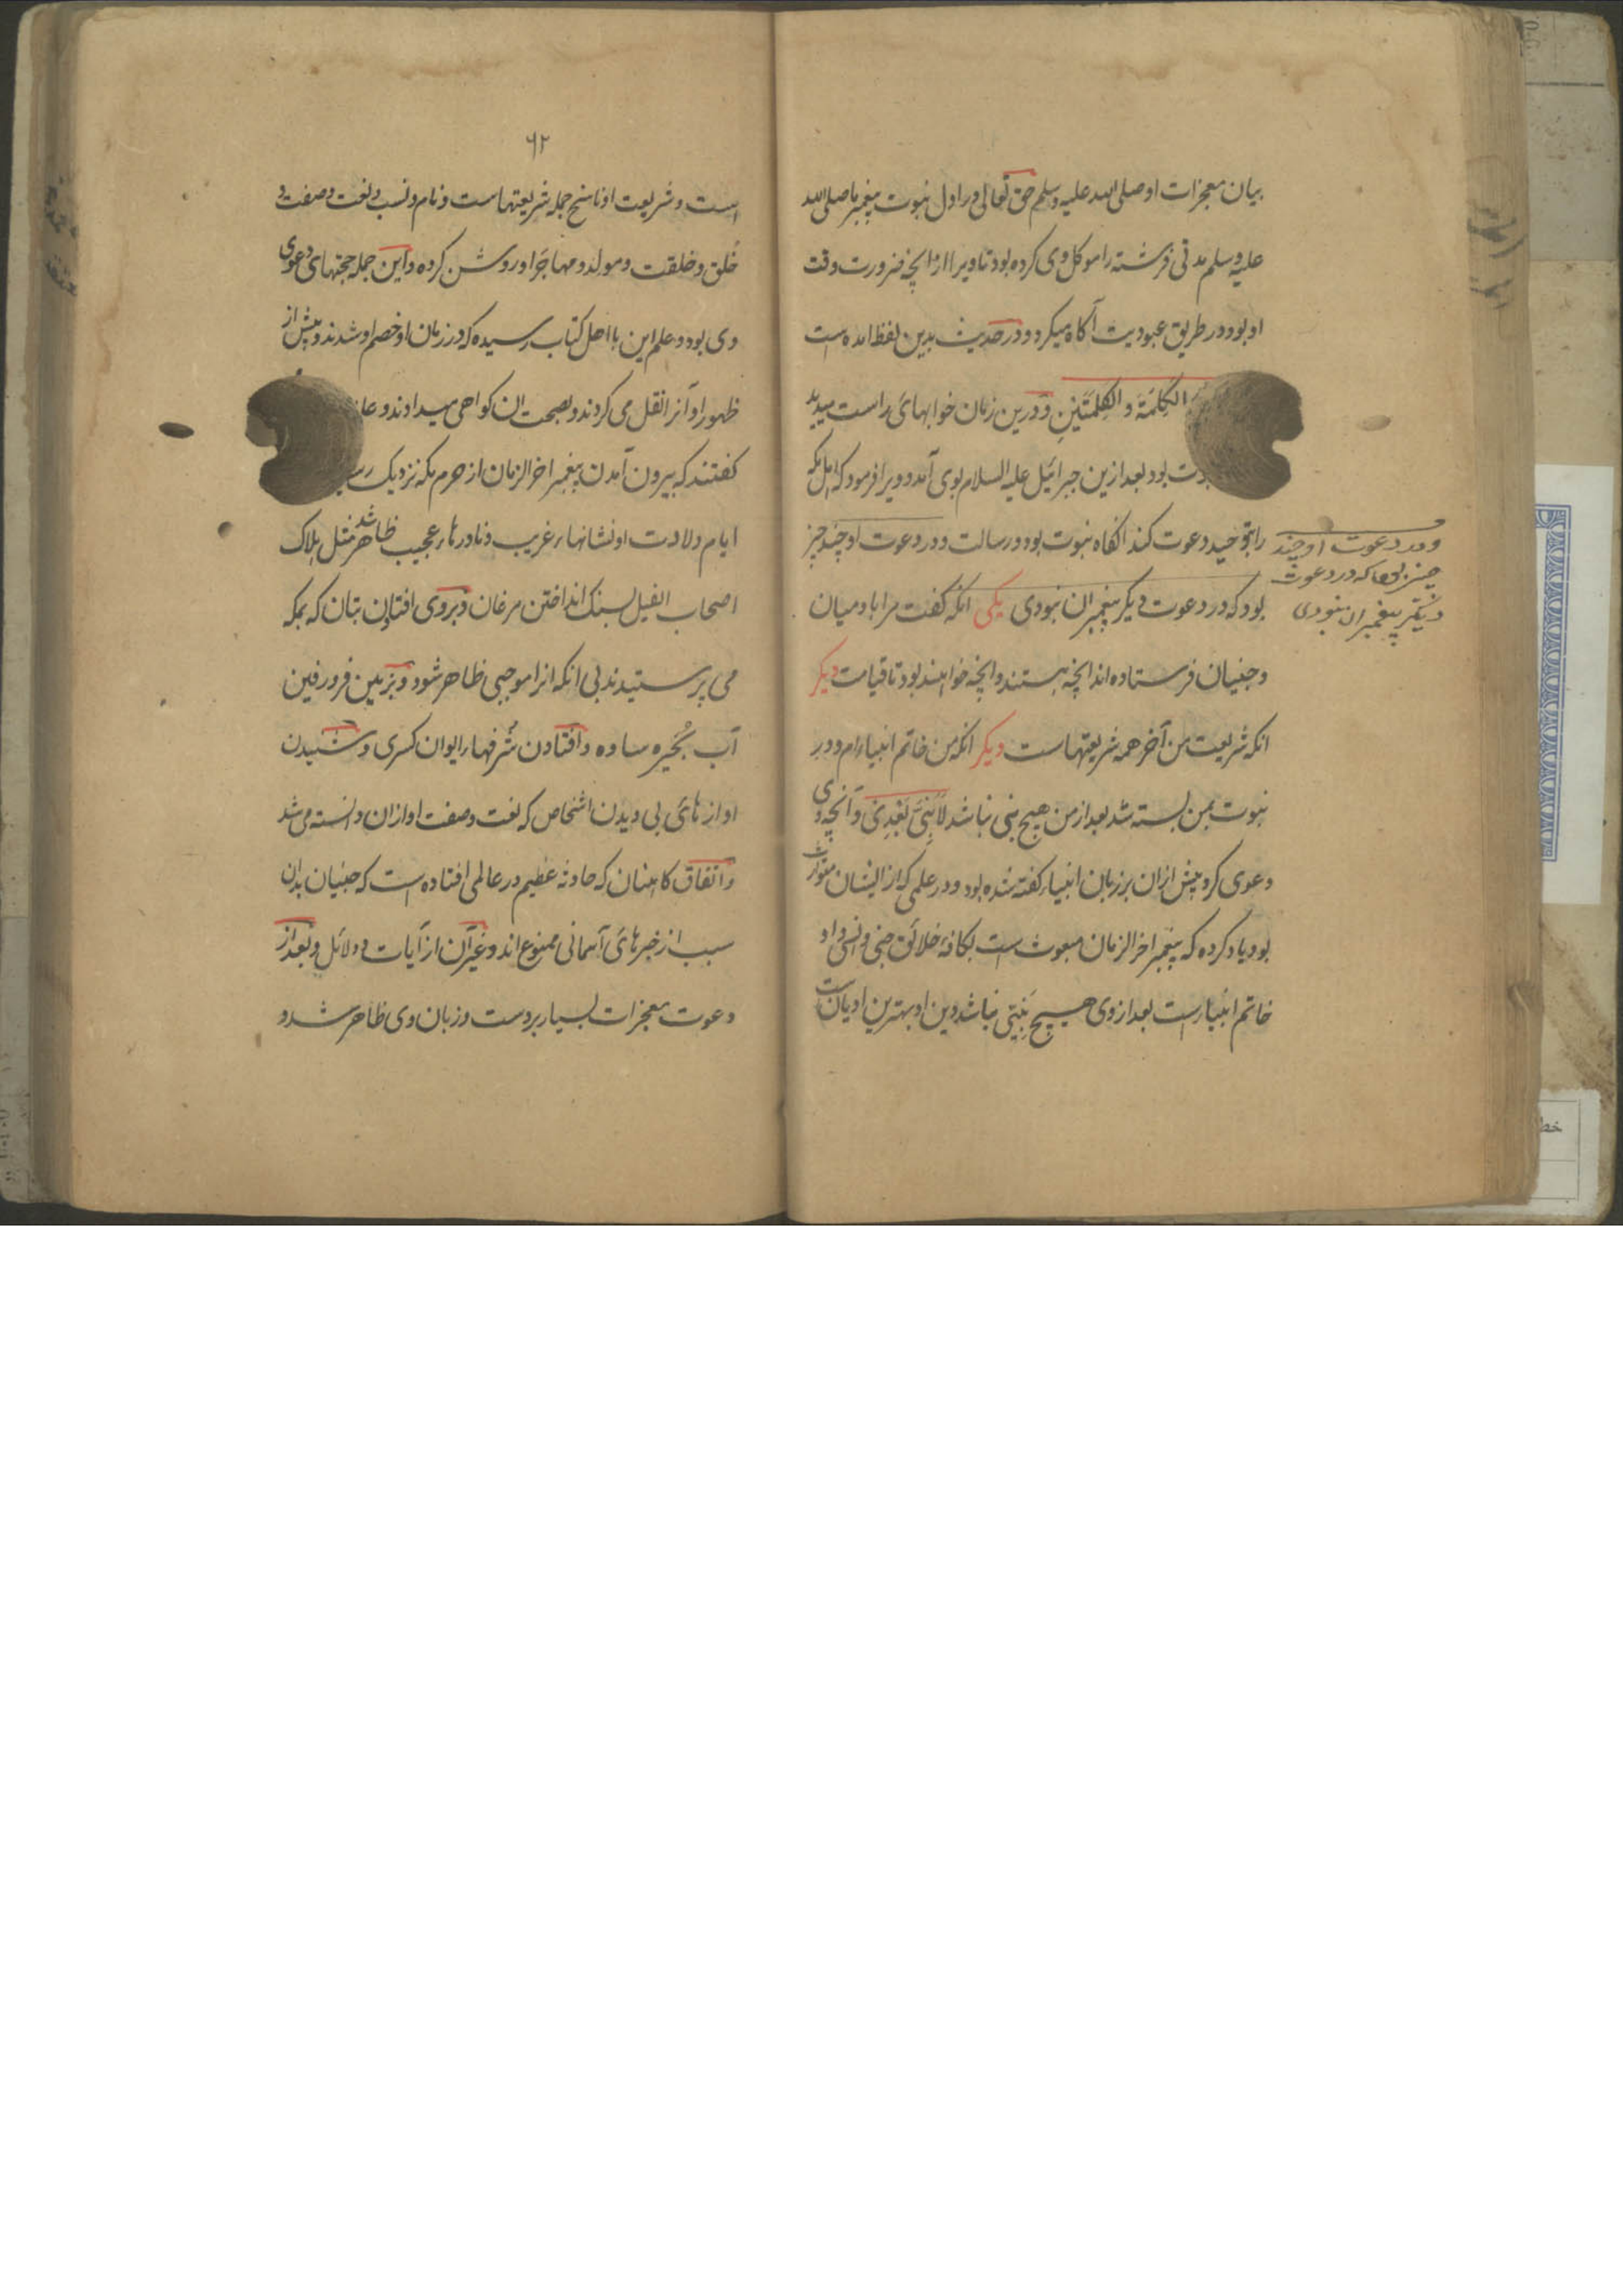 بیان معجزات او صلی الله علیه وسلم حق تعالی در اول نبوت پیغمبر ما صلی الله
علیه وسلم مدتی فرشته را موکل وی کرده بود تا ویرا از انچه ضرورت وقت
او بود در طریق عبودیت آکاه میکرد و در حدیث بدین لفظ امده است
الکلمة و الکلمتین و درین زمان خوابهای راست میدید
بود بعد ازین جبرائیل علیه السلام بوی آمد و ویرا فرمود که اهل مکه
را بتوحید دعوت کند انکاه نبوت بود و رسالت و در دعوت او چند چیز
ودر دعوت او چند
چیز بود که در دعوت
دیکر پیغمبران نبودی
بود که در دعوت دیکر پیغمبران نبودی یکی انکه کفت مرا بادمیان
وجنیان فرستاده اند انچه هستند وانچه خواهند بود تا قیامت دیکر
انکه شریعت من آخر همه شریعتهاست دیکر انکه من خاتم انبیاءام و در
نبوت بمن بسته شد بعد از من هیچ نبی نباشد لا نبی بعدی و آنچه وی
دعوی کرد پیش ازان بر زبان انبیاء کفته شده بود ودر علمی که از ایشان متوارث
بود یاد کرده که پیغمبر اخر الزمان مبعوث است بکافهٔ خلائق جنی وانسی واو
خاتم انبیاست بعد از وی هیچ نبیی نباشد ودین او بهترین ادیان است
٦٢
است وشریعت او ناسخ جمله شریعتهاست ونام ونسب ونعت وصفت و
خُلق وخلقت ومولد ومهاجر او روشن کرده واین جمله حجتهای دعوی
وی بود وعلم این با اهل کتاب رسیده که در زمان او خصم او شدند وپیش از
ظهور او آنرا نقل می کردند وبصحت ان کواهی میدادند و
کفتند که بیرون آمدن پیغمبر اخر الزمان از حرم مکه نزدیک
ایام ولادت او نشانهاء غریب ونادرهاء عجیب ظاهر شد مثل هلاک
اصحاب الفیل بسنک انداختن مرغان وبروی افتادن بتان که بمکه
می پرستیدند بی انکه انرا موجبی ظاهر شود وبزمین فرو رفتن
آب بُحیره ساوه وافتادن شُرفهاء ایوان کسری وشنیدن
اوازهای بی دیدن اشخاص که نعت وصفت او ازان دانسته می شد
واتفاق کاهنان که حادثهٔ عظیم در عالمی افتاده است که جنیان بدان
سبب از خبرهای آسمانی ممنوع اند وغیر آن از آیات ودلائل وبعد از
دعوت معجزات بسیار بردست وزبان وی ظاهر شد و